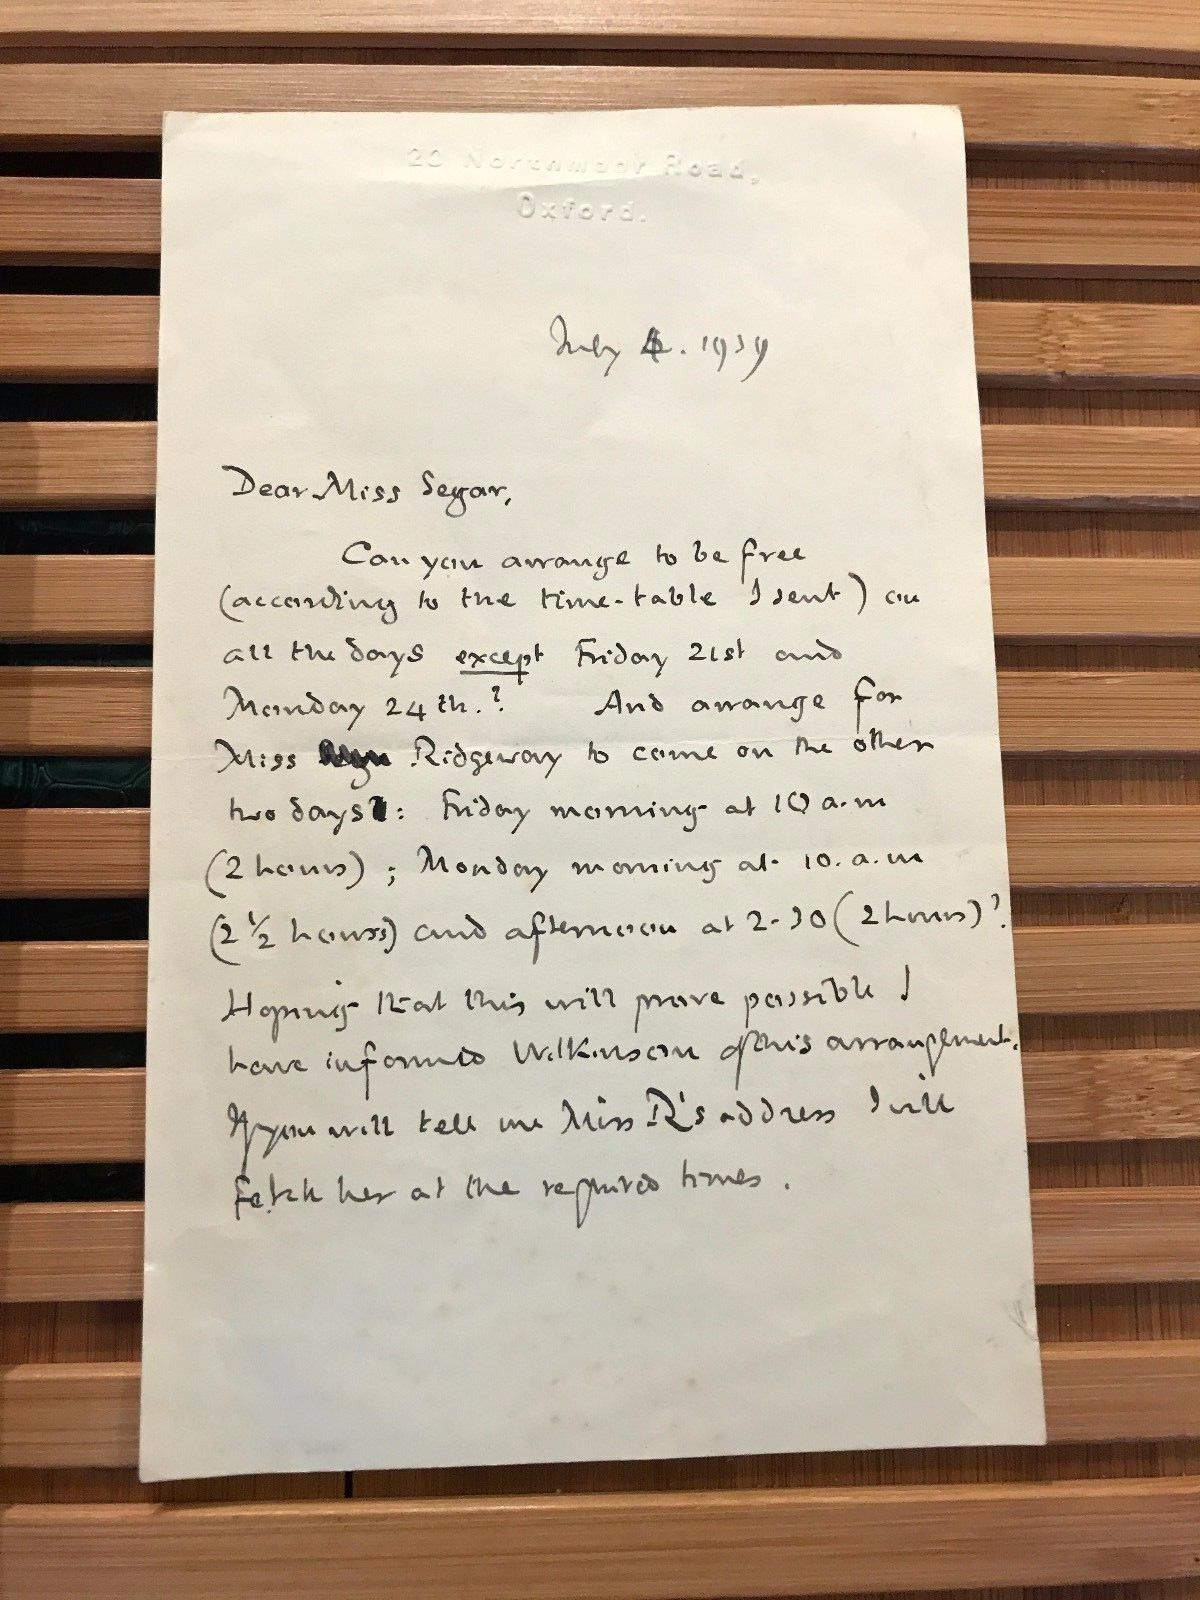 20 Northmoor Road,
Oxford.
July 4. 1939
Dear Miss Segar,
Can you arrange to be free
(according to the time-table I sent) on
all the days except Friday 21st and
Monday 24th.? And arrange for
Miss Ridgeway to come on the other
two days: Friday morning at 10 a.m
(2 hours) ; Monday morning at 10. a.m
(2 1/2 hours) and afternoon at 2-30 (2 hours)?
Hoping that this will prove possible I
have informed Wilkinson of this arrangement.
If you will tell me Miss R's address I will
fetch her at the required times.